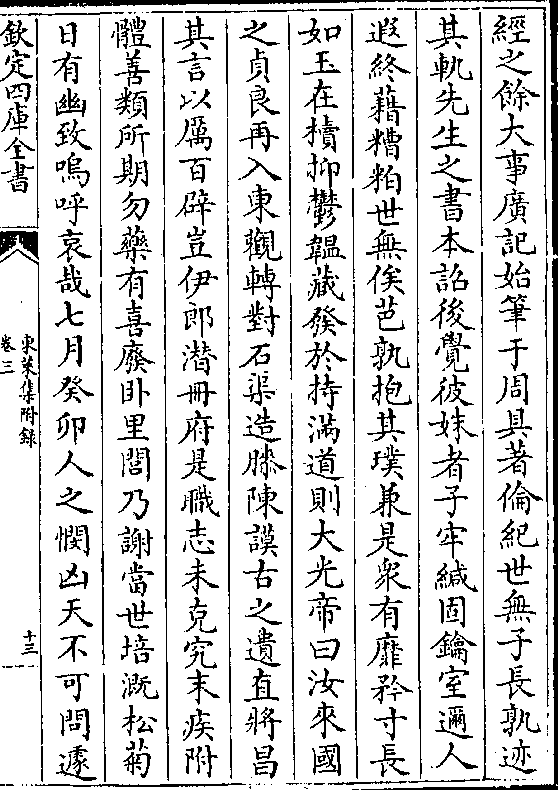 經之餘大事廣記始筆于周具著倫紀世無子長孰迹
其軌先生之書本詔後覺彼姝者子牢緘固鑰室邇人
遐終藉糟粕世無俟芭孰抱其璞兼是衆有靡矜寸長
如玉在櫝抑鬱韞藏發於持滿道則大光帝曰汝來國
之貞良再入東觀轉對石渠造膝陳謨古之遺直將昌
其言以厲百辟豈伊郎潛冊府是職志未克究末疾附
體善類所期勿藥有喜廢卧里閭乃謝當世培溉松菊
日有幽致嗚呼哀哉七月癸卯人之憫凶天不可問遽
欽定四庫全書
東萊集附錄
卷三
十三